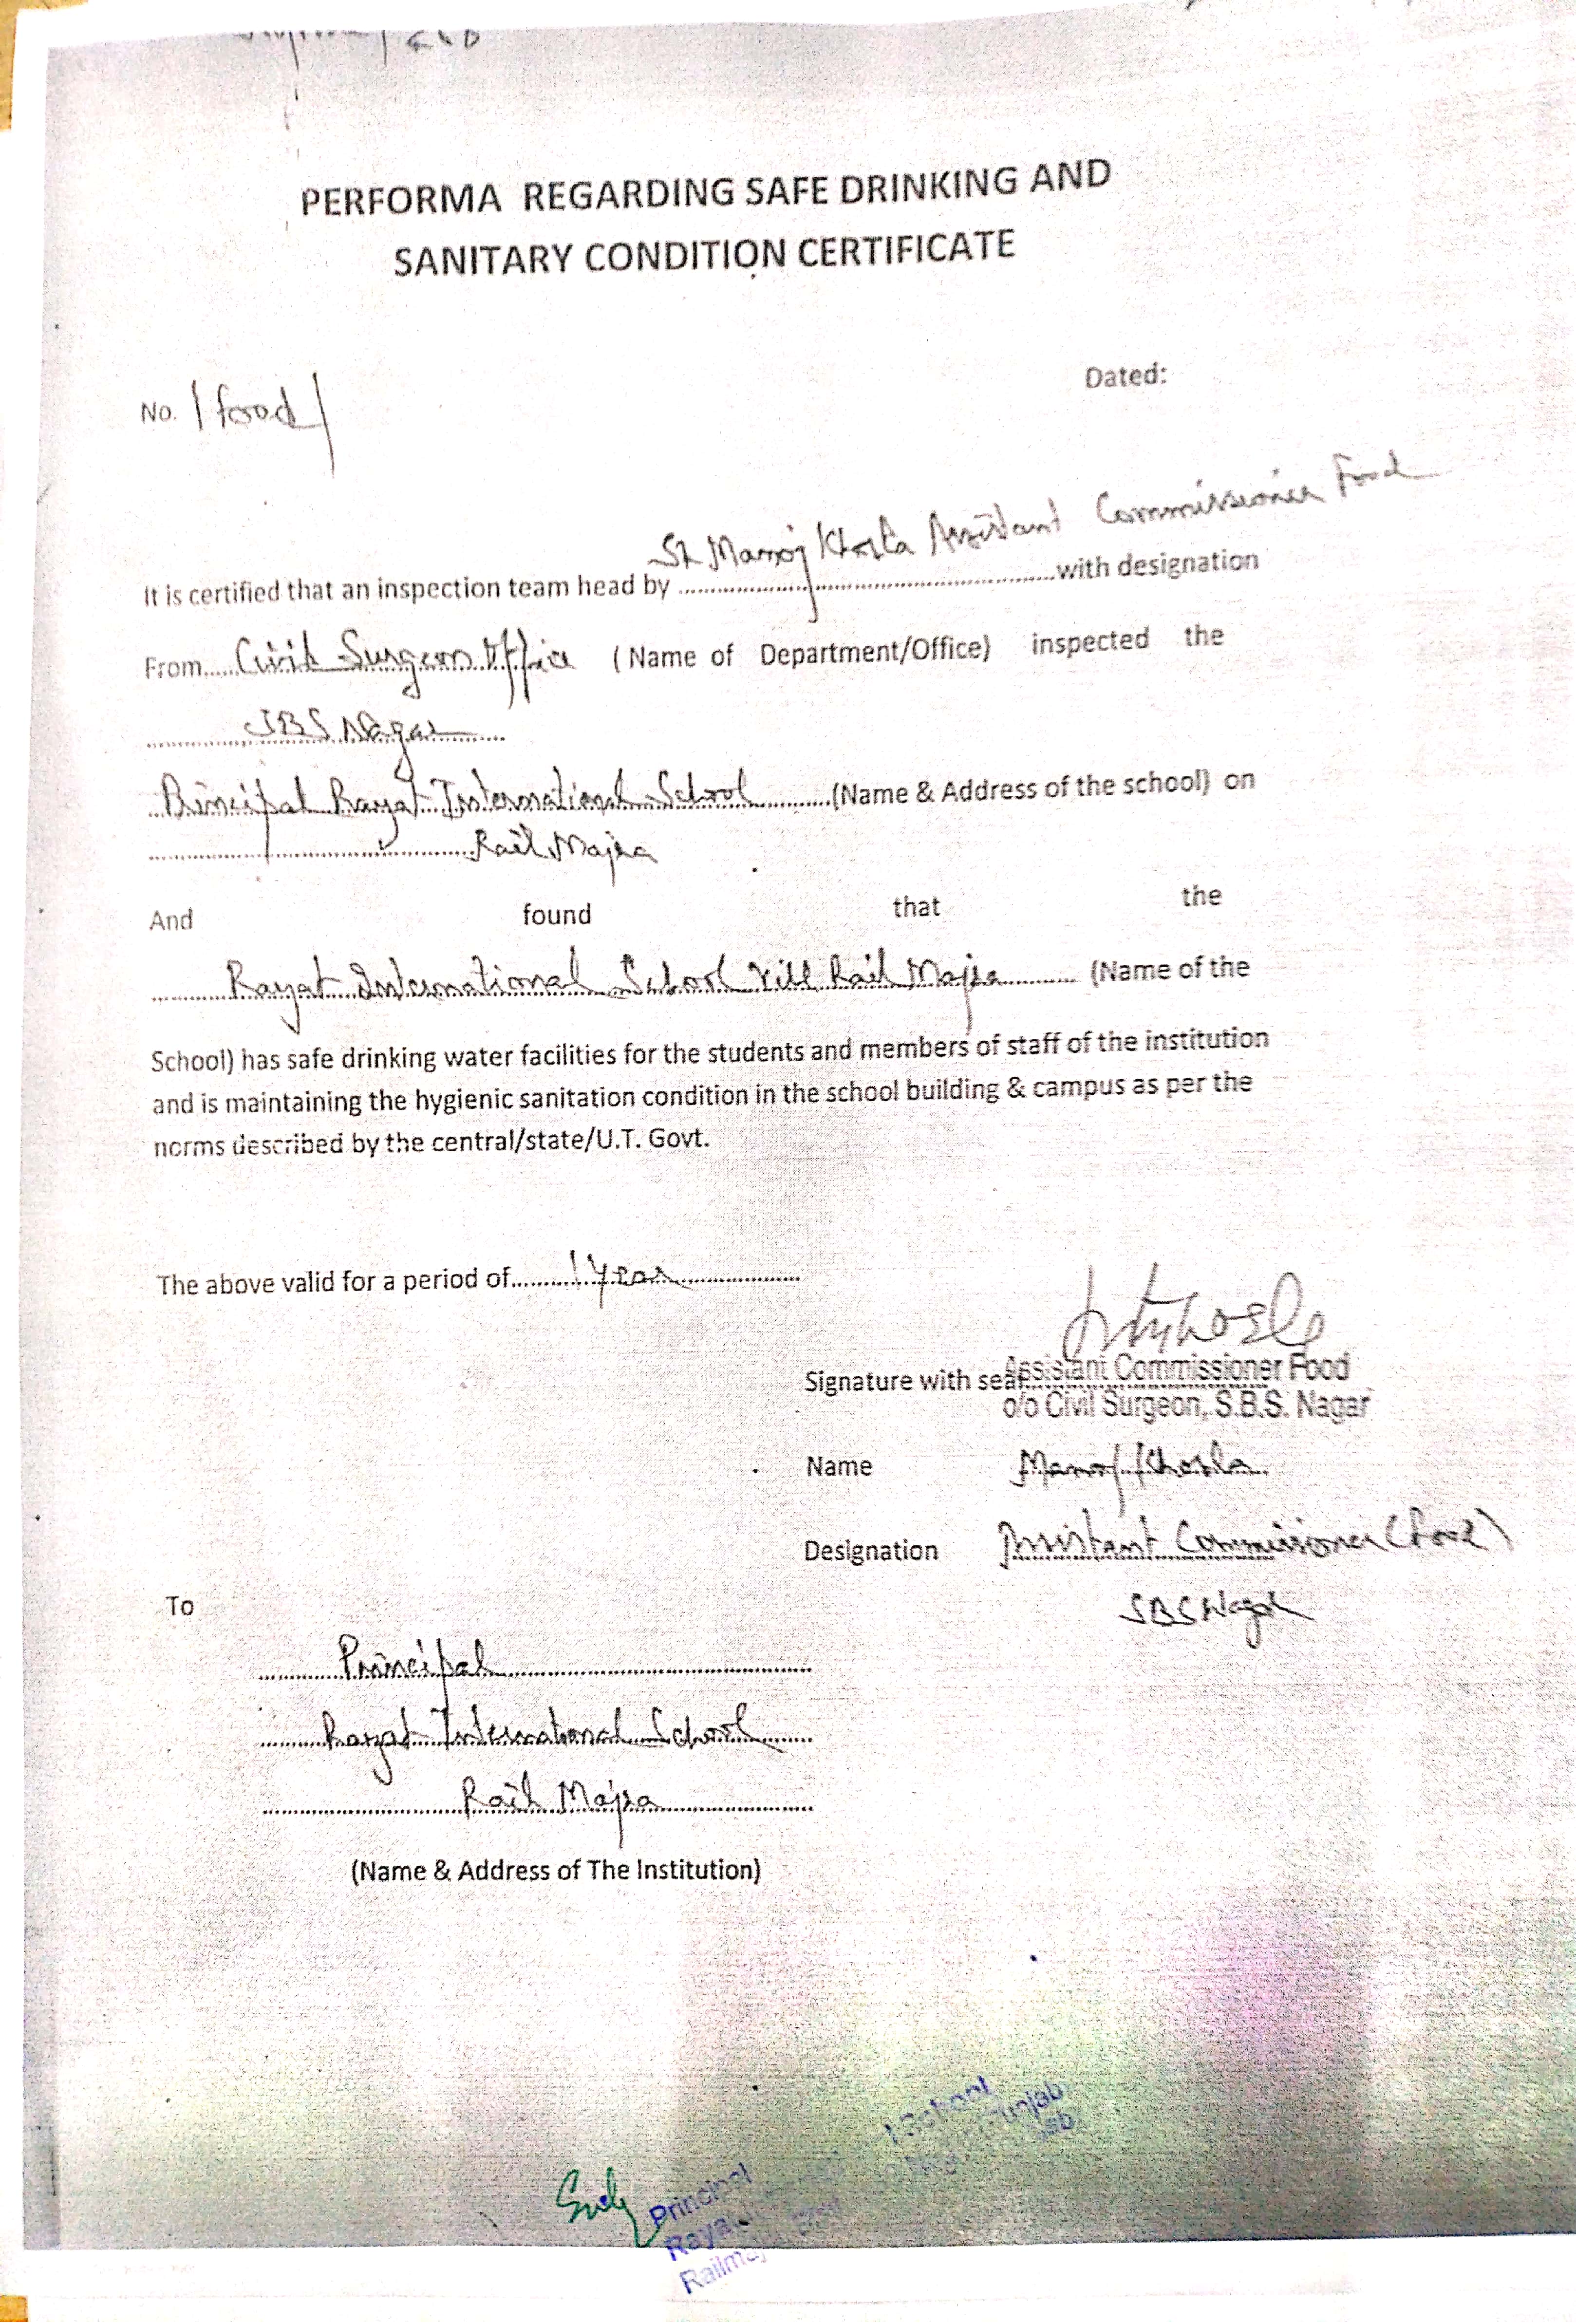 PERFORMA REGARDING SAFE DRINKING AND
SANITARY CONDITION CERTIFICATE
Dated:
No. / food /
Sh Manoj Khosla Assistant Commissioner Food
It is certified that an inspection team head by ........................ with designation
From Civil Surgeon Office (Name of Department/Office) inspected the
SBS Nagar
Principal Rayat International School (Name & Address of the school) on
Rail Majra
And found that the
Rayat International School Vill Rail Majra (Name of the
School) has safe drinking water facilities for the students and members of staff of the institution
and is maintaining the hygienic sanitation condition in the school building & campus as per the
norms described by the central/state/U.T. Govt.
The above valid for a period of 1 Year
Signature with seal
Assistant Commissioner Food
o/o Civil Surgeon, S.B.S. Nagar
Name Manoj Khosla
Designation Assistant Commissioner (Food)
SBS Nagar
To
Principal
Rayat International School
Rail Majra
(Name & Address of The Institution)
School
Punjab
Principal